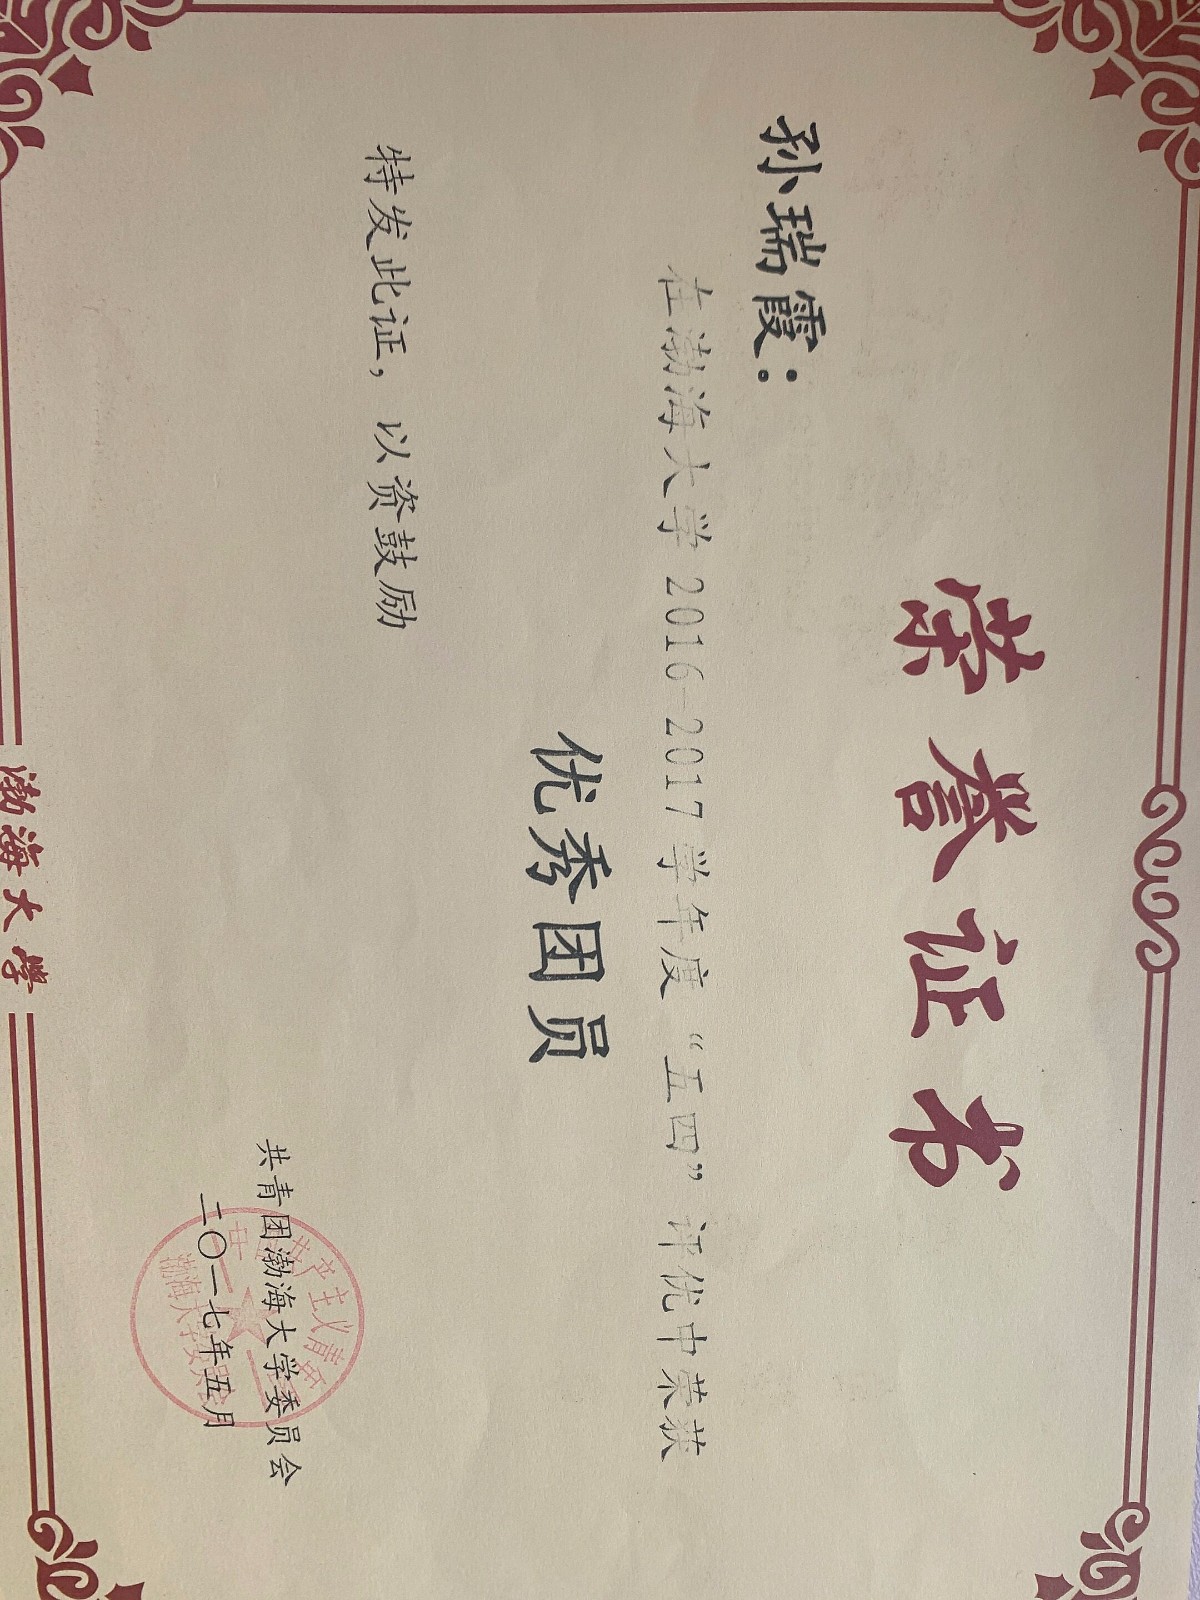 荣誉证书
孙瑞霞：
在渤海大学2016-2017学年度“五四”评优中荣获
优秀团员
特发此证，以资鼓励
共青团渤海大学委员会
二〇一七年五月
中国共产主义青年团
渤海大学委员会
渤海大学